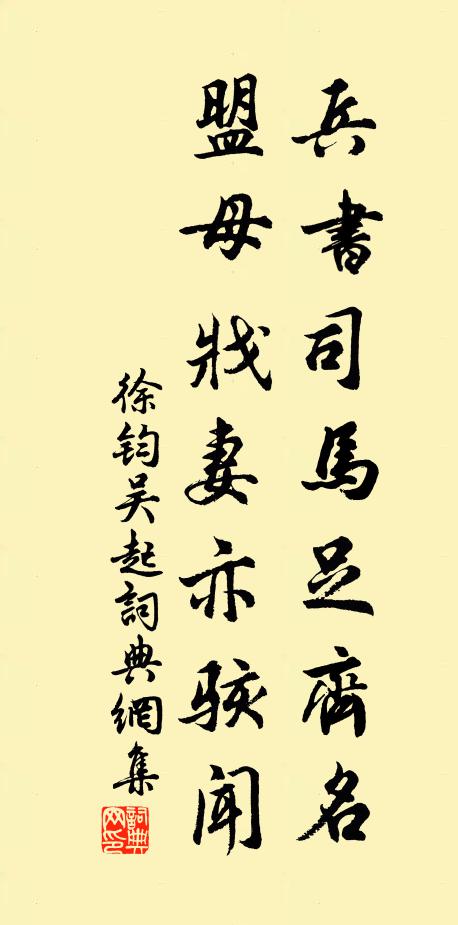 兵書司馬足齊名
盟母戕妻亦骇聞
徐鈞吴起詞典網集
詞典
网印